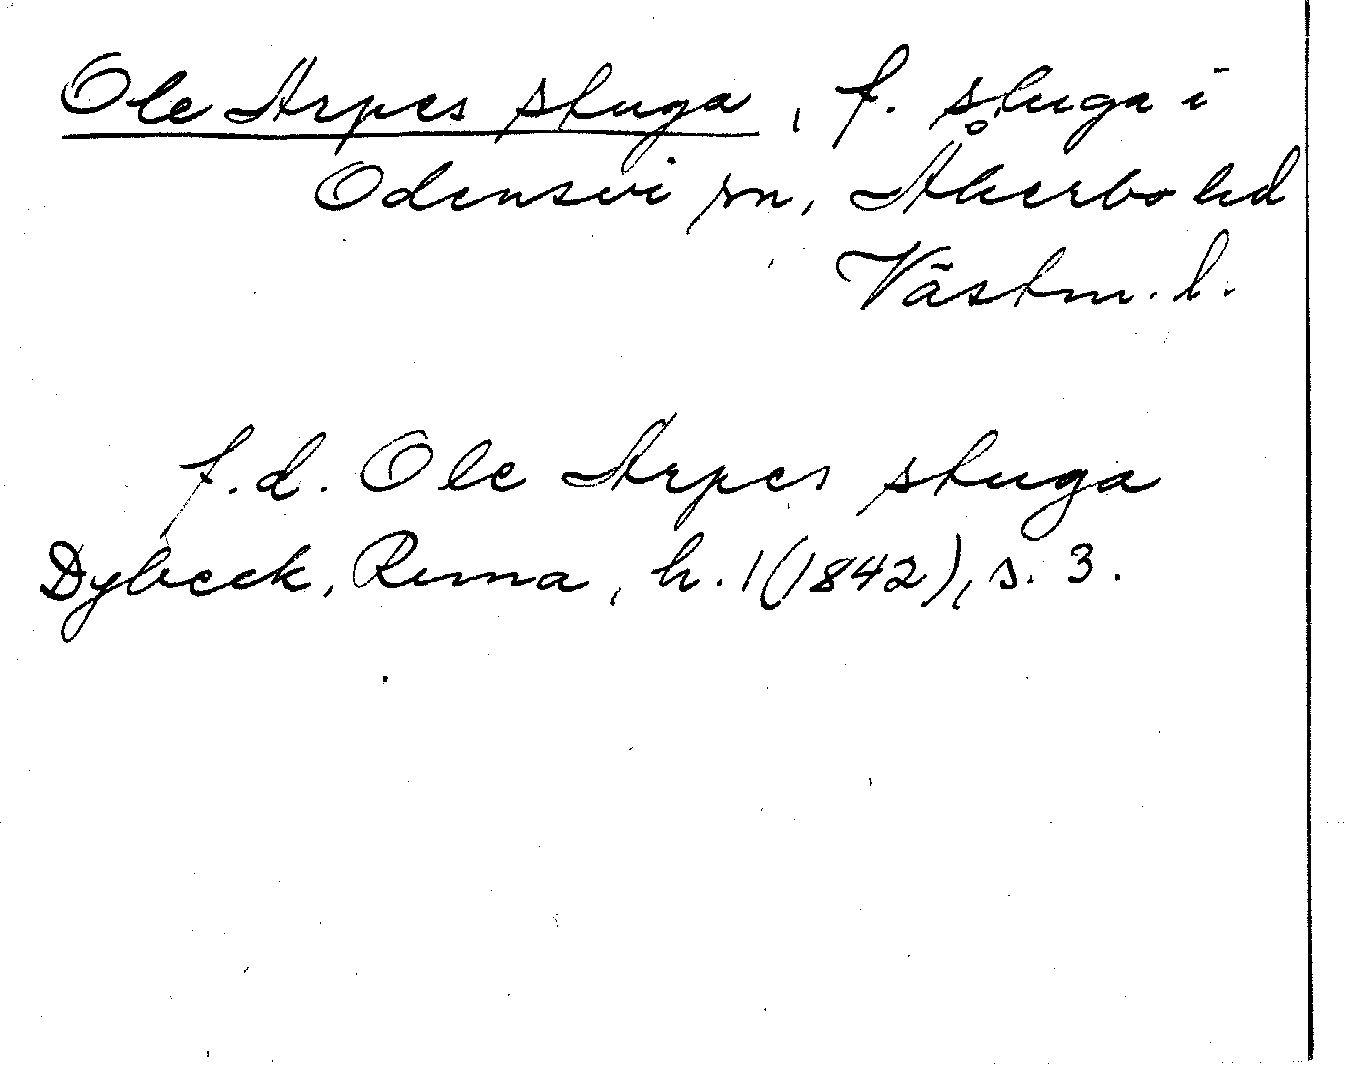 Ole Arpes stuga, f. stuga i
Odensvi sn, Åkerbo hd
Västm. l.
f.d. Ole Arpes stuga
Dybeck, Runa, h. 1 (1842), s. 3.